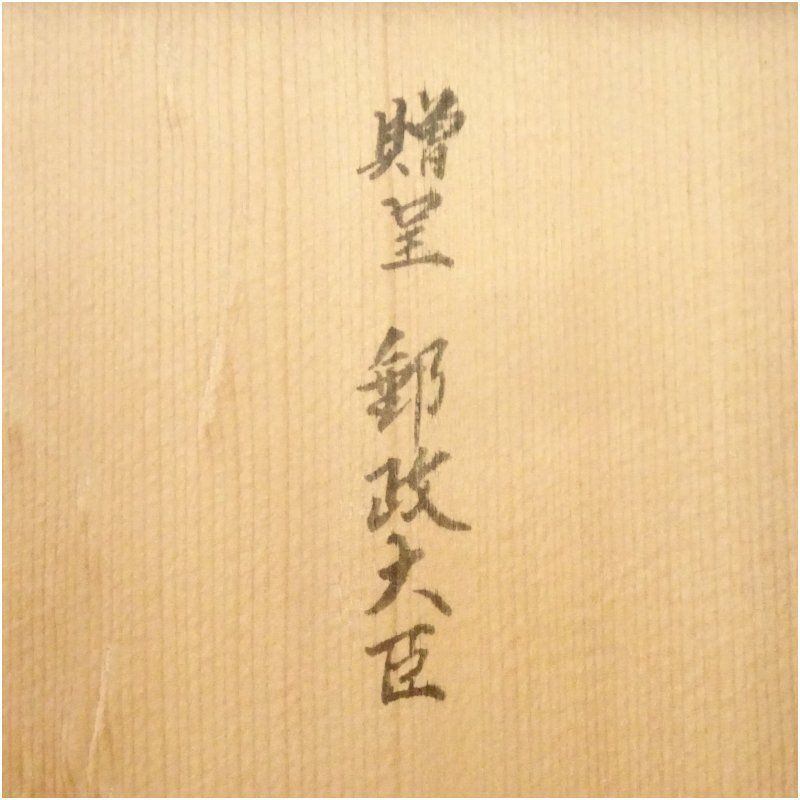 贈呈 郵政大臣